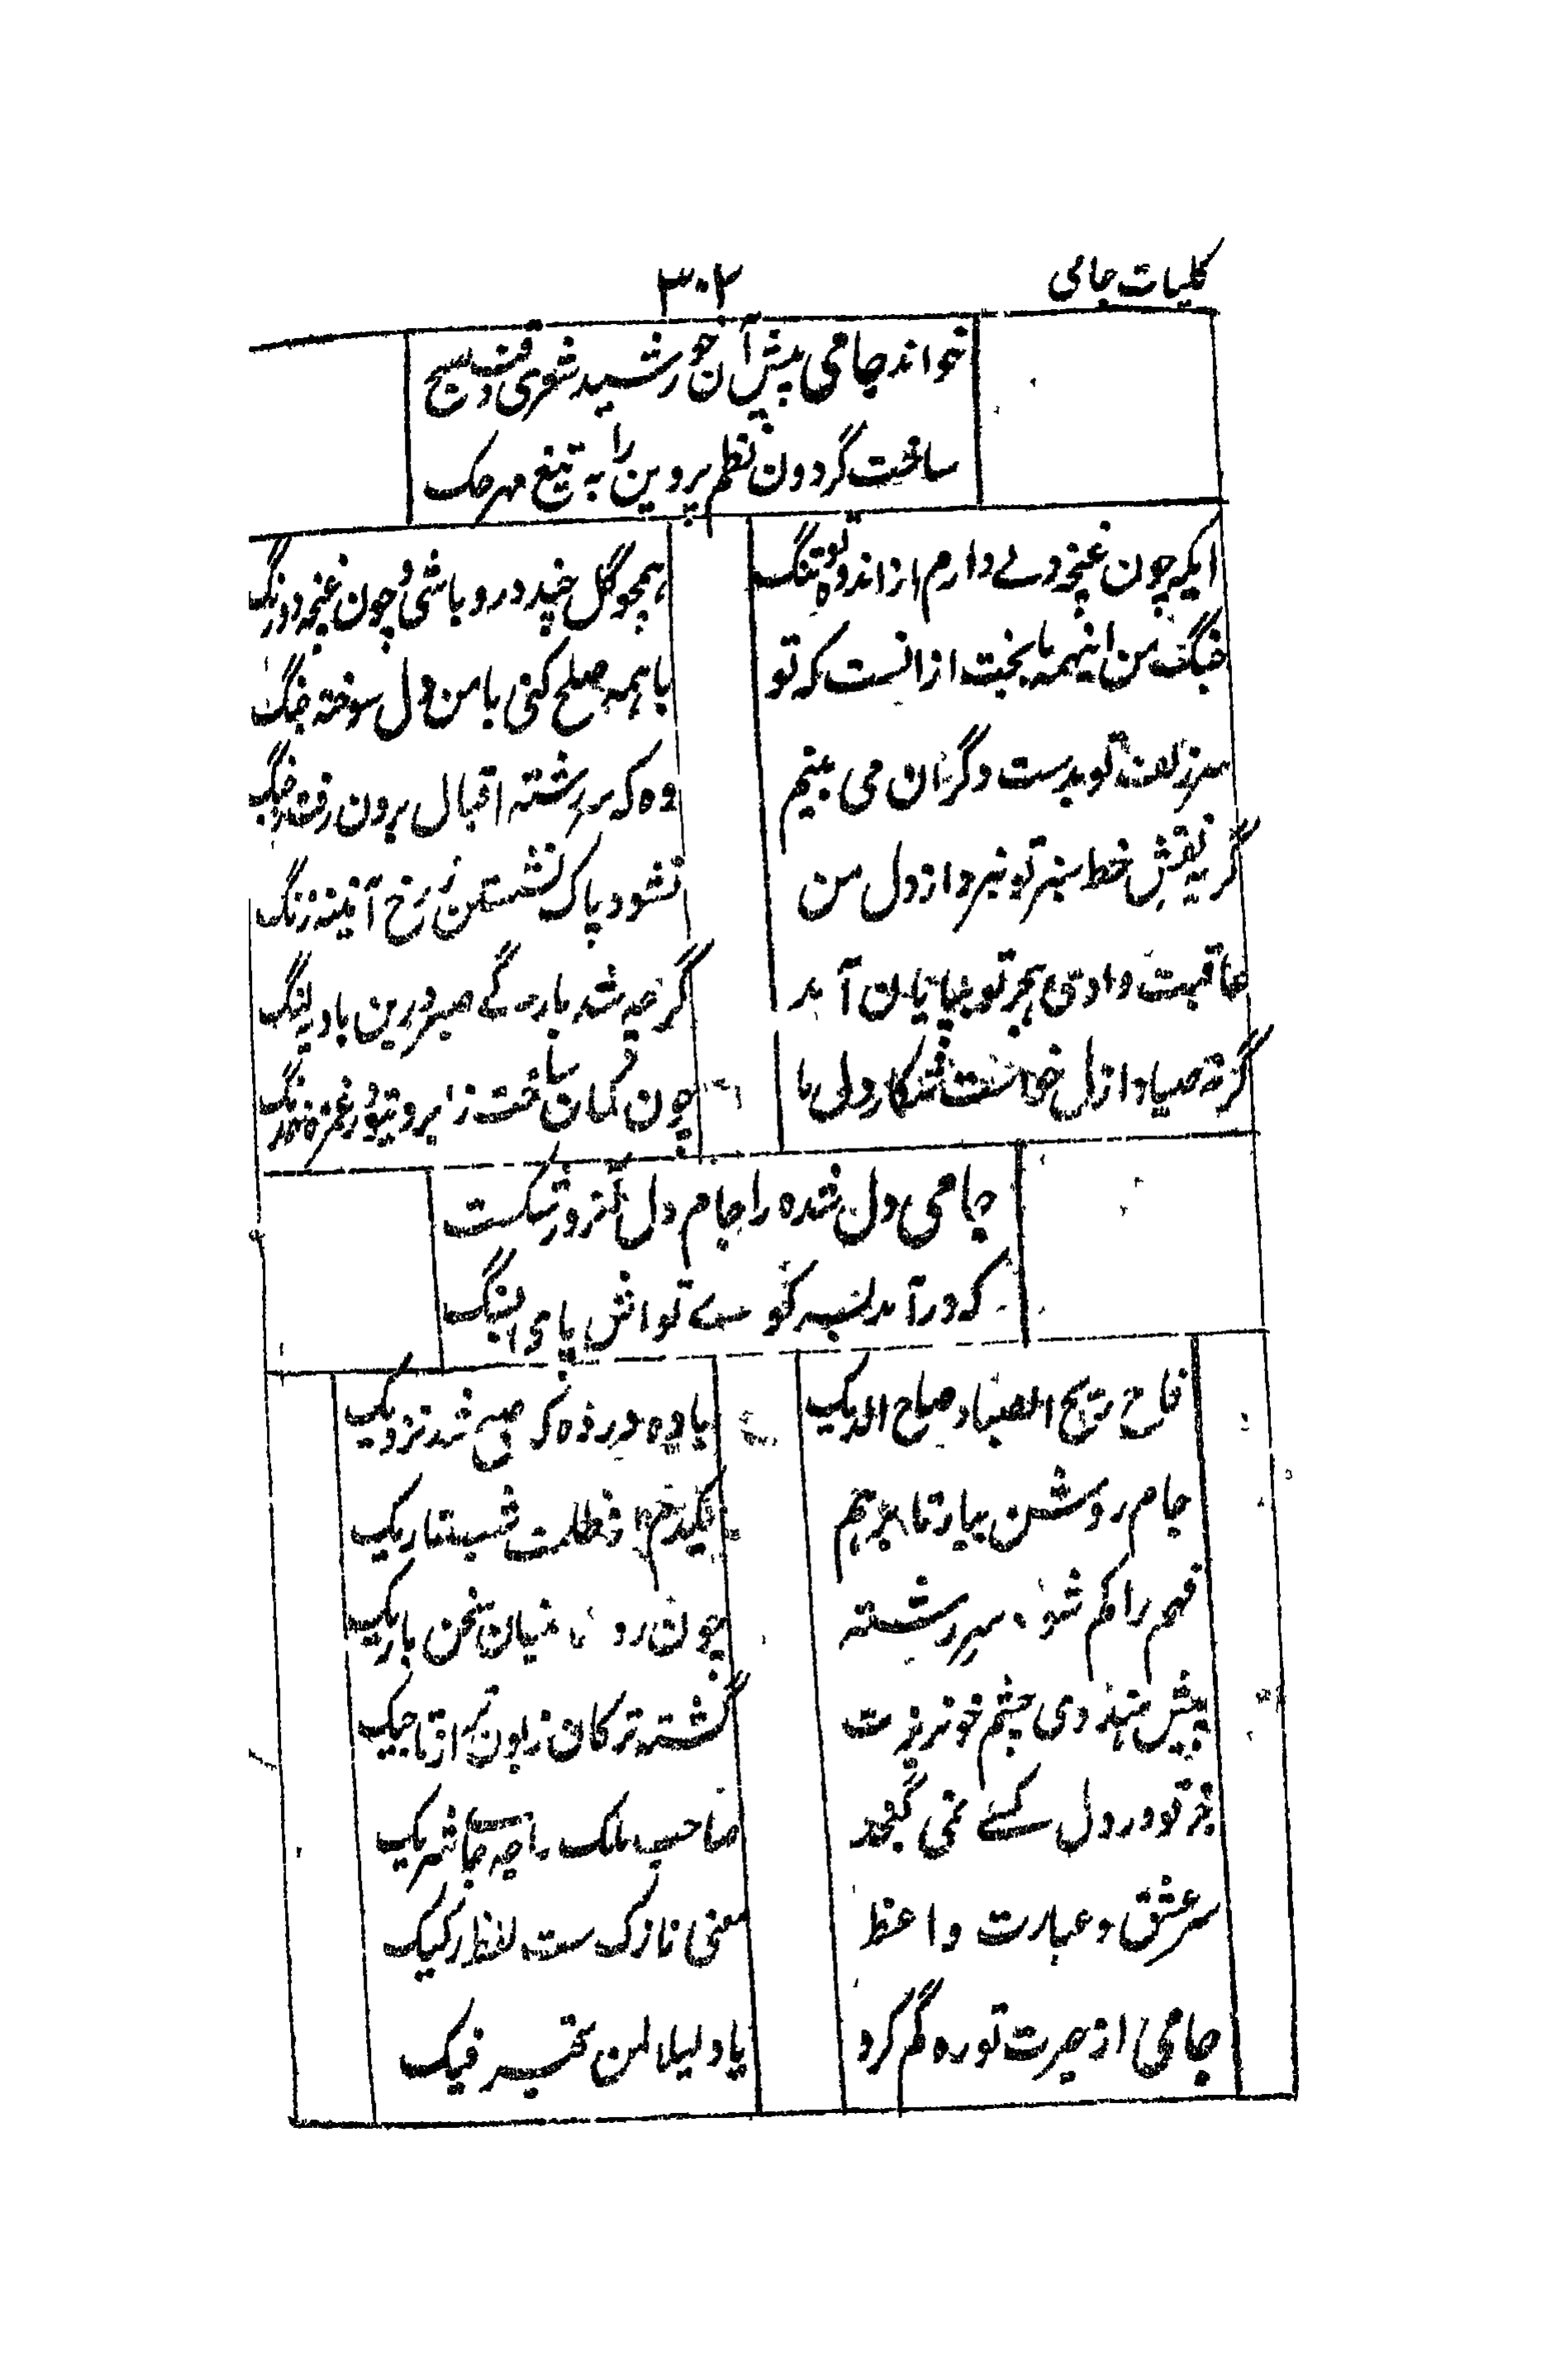 کلیات جامی
۳۰۲
خواند جامی پیش آن خورشید شعری فصیح
ساخت گردون نظم پروین را به تیغ مهر حک
ایکه چون غنچه دلے دارم از اندوه تو تنگ
همچو گل چند دورو باشی و چون غنچه دو رنگ
جنگ من اینهمه با بخت از انست که تو
با همه صلح کنی با من دل سوخته جنگ
سر زلف تو بدست دگران می بینم
وه که سر رشته اقبال برون رفت ز چنگ
گریه نقش خط سبز تو نبرد از دل من
نشود پاک نشستن ز رخ آئینه زنگ
عاقبت وادی هجر تو بپایان آمد
گرچه شد بارگے صبر درین بادیه لنگ
گرنه صیاد ازل خواست شکار دل ما
چون کمان ساخت ز ابروی تو و غمزه خدنگ
جامی دل شده را جام دل آنروز شکست
که در آمد بسر کوے تواش پای بسنگ
فاح ریح الصبا و صاح الدیک
باده در ده که صبح شد نزدیک
جام روشن بیار تا برهیم
یکدم از ظلمت شب تاریک
فهم را گم شود سر رشته
چون رود میان سخن باریک
پیش هندوی چشم خونریزت
گشته ترکان زبون تر از تاجیک
جز تو در دل کسے نمی گنجد
صاحب ملک را چه جاے شریک
سر عشق و عبارت واعظ
معنی نازک ست لفظ رکیک
جامی از حیرت تو ره گم کرد
یا دلیلا لمن تحیر فیک